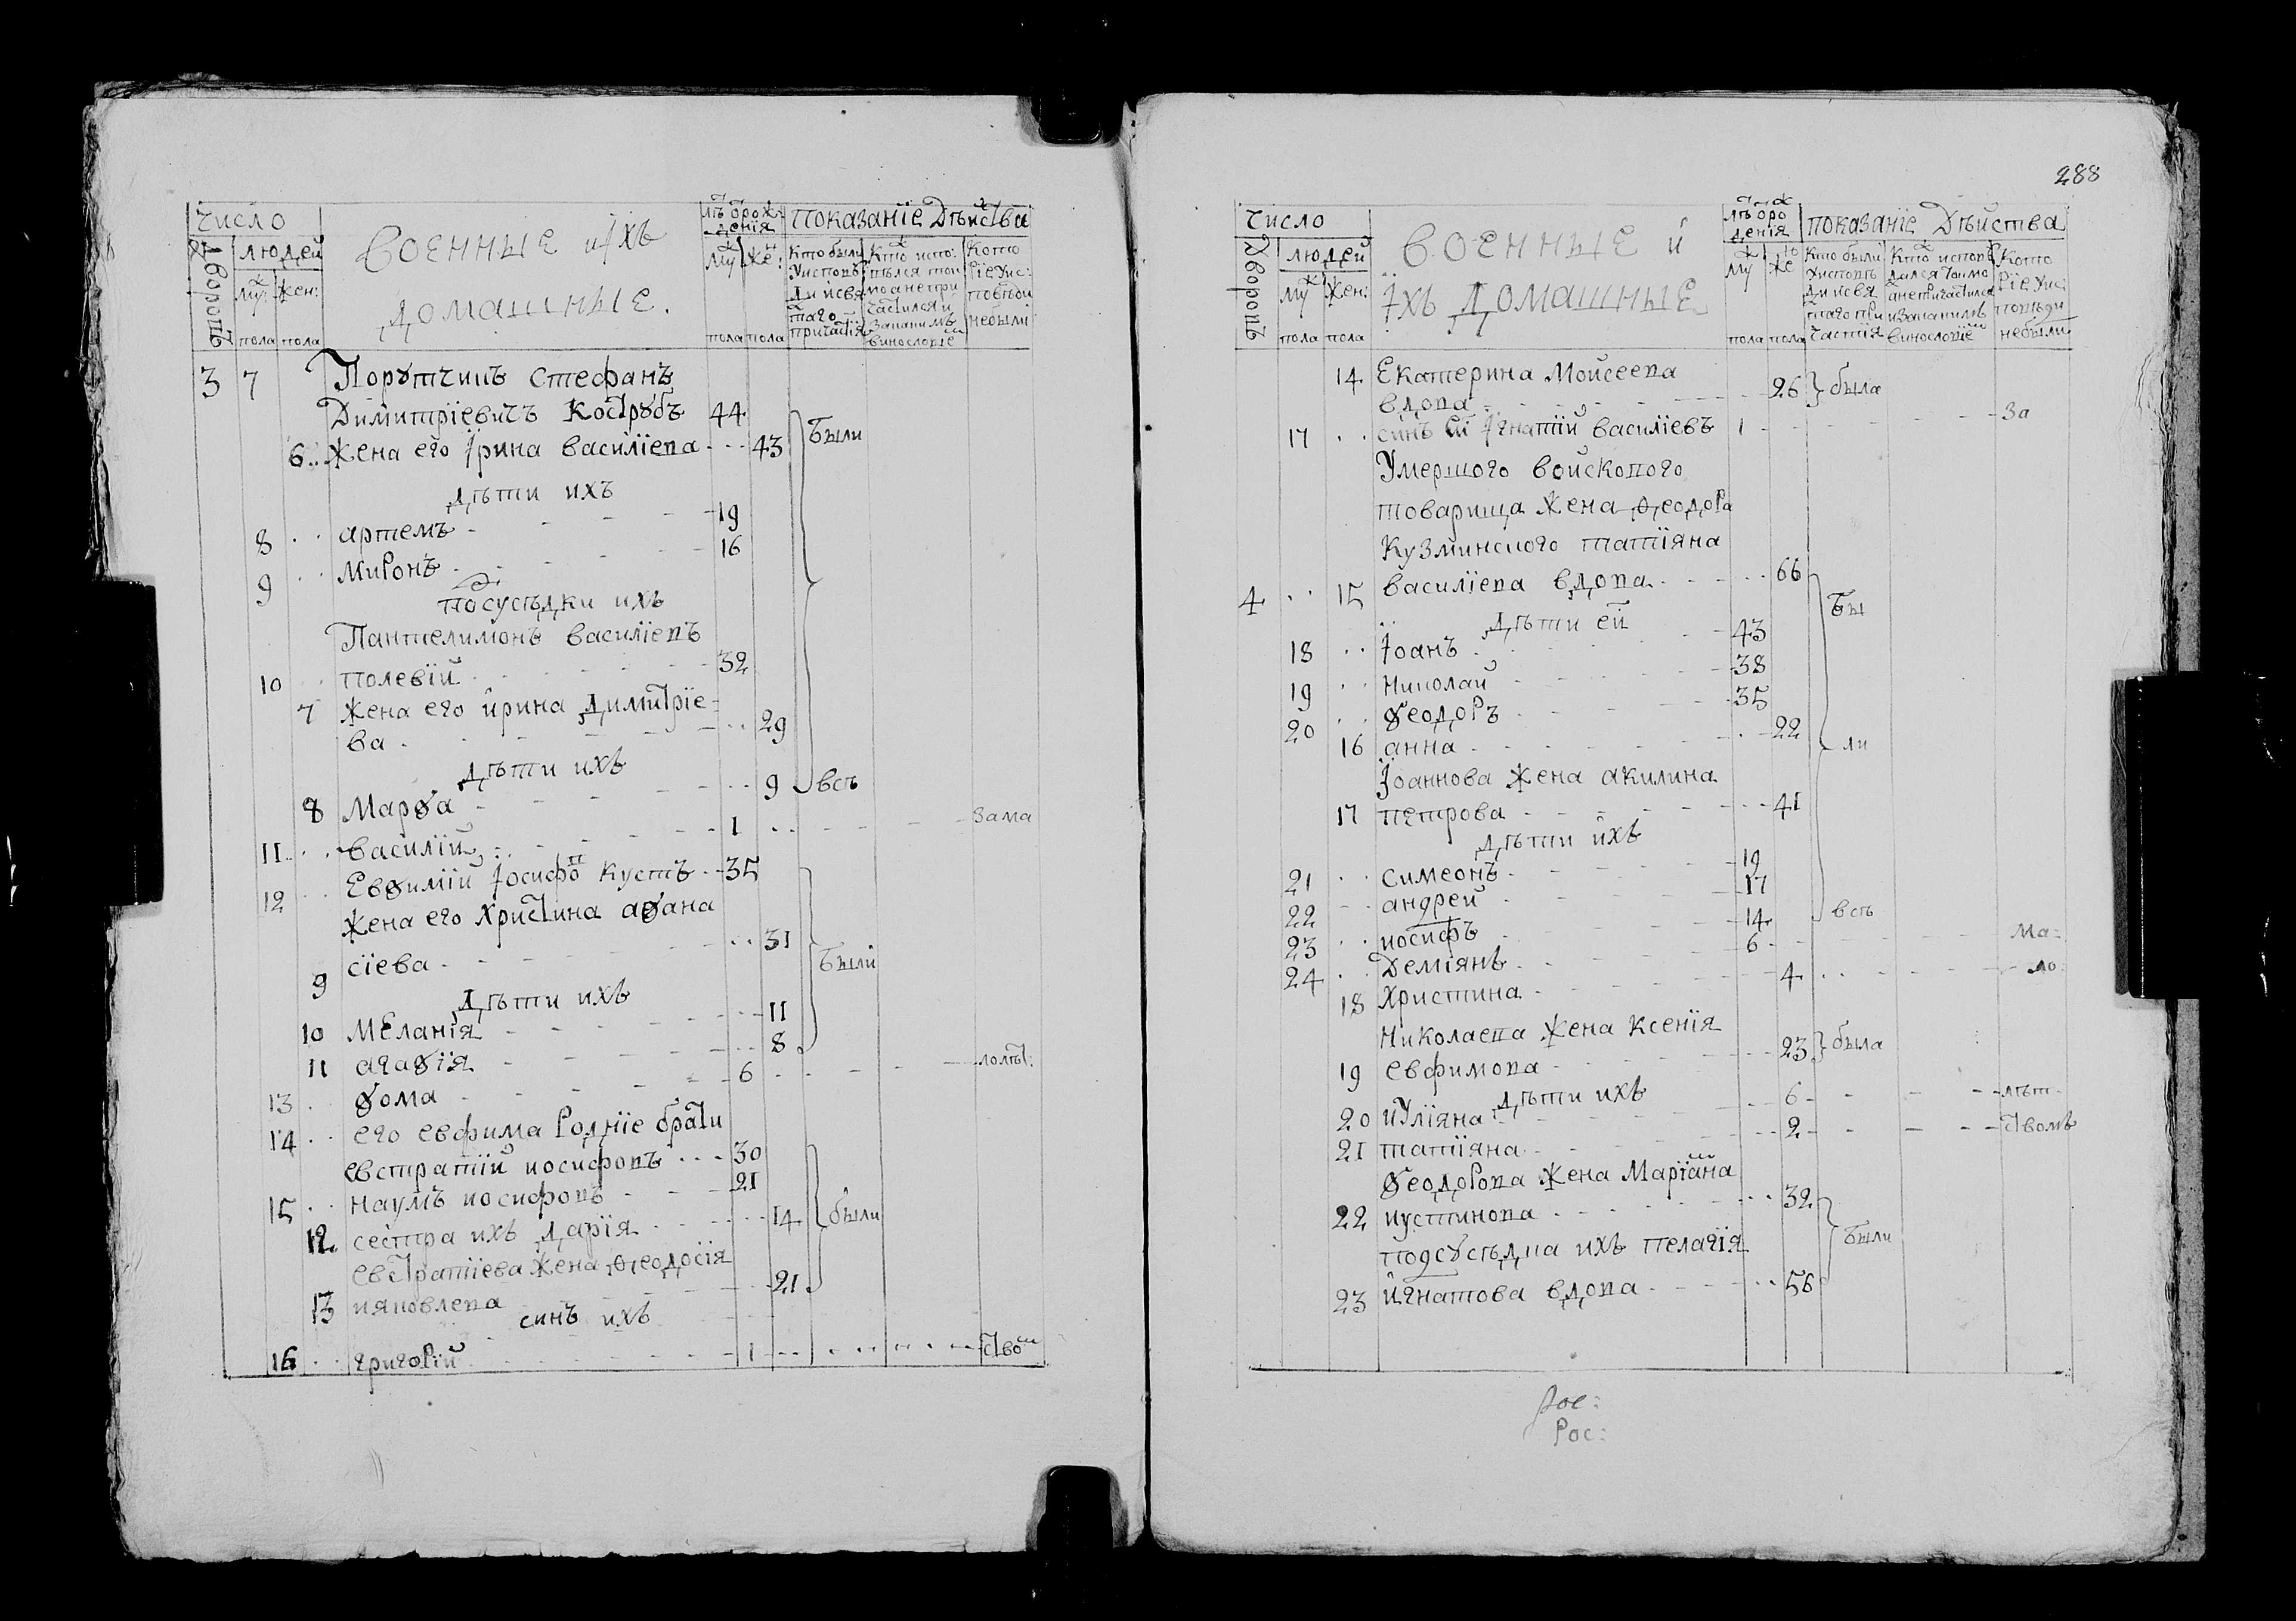 число
дворовъ
людей
му: жен:
пола пола
военные ихъ
домашные.
лѣтъ рож:
денїя
му же:
пола пола
показанїе дѣйства
кто были
у исповѣ
ди и свя
таго
причастїя
кто испо:
вѣлся то
мо а не при
частился и
за каким
винословіе
кото
рїе у ис:
повѣди
небыли
3 7 Порутчикъ стефанъ
Димитрїевичъ Кострубъ 44
6 жена его Ірина василїева 43 Были
дѣти ихъ
8 артемъ 19
9 миронъ 16
подсусѣдки ихъ
Пантелимонъ василїевъ
10 полевїй 32
7 жена его ирина димитрїе
ва 29
дѣти ихъ
8 Марѳа 9 всѣ
11 василїй 1 зама
12 Евѳимїй Іосифов Кустъ 35
жена его христина аѳана
9 сїева 31 Были
дѣти ихъ
10 Меланїя 11
11 агаѳїя 8
13 ѳома 6 лолѣт:
14 его евфима роднїе брати
евстратїй иосифовъ 30
15 наумъ иосифовъ 21
12 сестра ихъ дарїя 14 были
евстратїева жена ѳеодосїя
13 ияковлева 21
синъ ихъ
16 григорїй 1 ством
288
число
дворовъ
людей
му жен:
пола пола
военные и
їхъ домашные
лѣтъ ро
денїя
му же
пола пола
показанїе дѣйства
кто были
у исповѣ
ди и свя
таго при
частїя
кто исповѣ
дался токмо
а не причастился
и за каким
винословїем
кото
рїе у ис:
повѣди
небыли
14 Екатерина Моисеева
вдова 26 была
17 синъ еи Ігнатїй василїевъ 1 за
Умершого войскового
товарища жена ѳеодора
Кузминского татїяна
4 15 василїева вдова 66 Бы
дѣти ей
18 Іоанъ 43
19 Николай 38
20 ѳеодоръ 35
16 анна 22 ли
Іоаннова жена акилина
17 петрова 41
дѣти ихъ
21 симеонъ 19
22 андрей 17
23 иосифъ 14 всѣ
24 Демїянъ 6 ма:
18 христина 4 ло:
Николаева жена ксенїя
19 евфимова 23 была
дѣти ихъ
20 иУлїяна 6 лѣт
21 татїяна 2 ствомъ
ѳеодорова жена Марїана
22 иустинова 32
подсусѣдка ихъ пелагїя Были
23 игнатова вдова 56
Рос:
Рос: